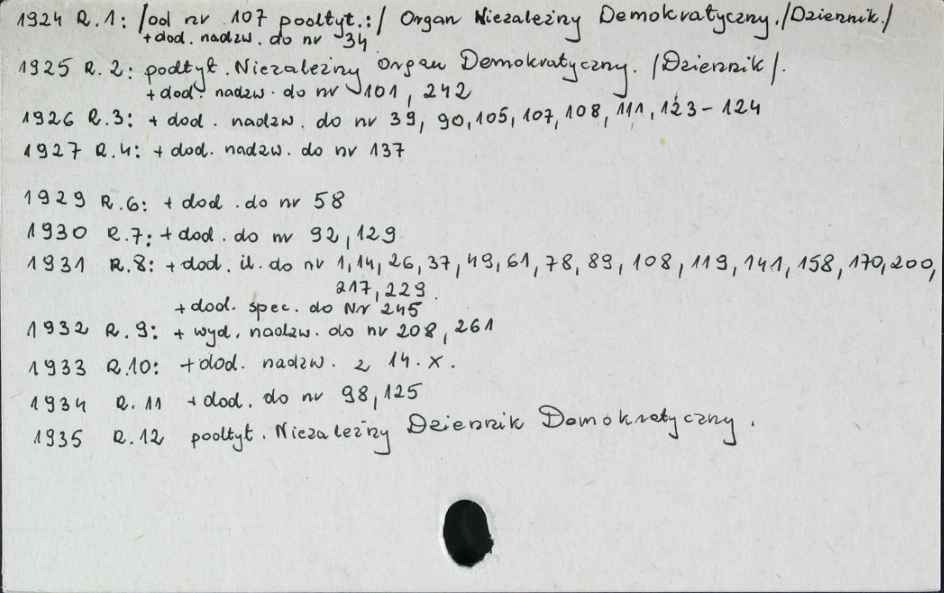 1924 R.1: /od nr 107 podtyt.:/ Organ Niezależny Demokratyczny./Dziennik./
+dod. nadzw. do nr 34
1925 R.2: podtyt. Niezależny Organ Demokratyczny. /Dziennik/.
+dod. nadzw. do nr 101, 242
1926 R.3: + dod. nadzw. do nr 39, 90, 105, 107, 108, 111, 123-124
1927 R.4: + dod. nadzw. do nr 137
1929 R.6: + dod. do nr 58
1930 R.7: + dod. do nr 92, 129
1931 R.8: + dod. il. do nr 1, 14, 26, 37, 49, 61, 78, 89, 108, 119, 141, 158, 170, 200,
217, 229.
+dod. spec. do Nr 245
1932 R.9: + wyd. nadzw. do nr 208, 261
1933 R.10: +dod. nadzw. z 14.X.
1934 R.11 +dod. do nr 98, 125
1935 R.12 podtyt. Niezależny Dziennik Demokratyczny.